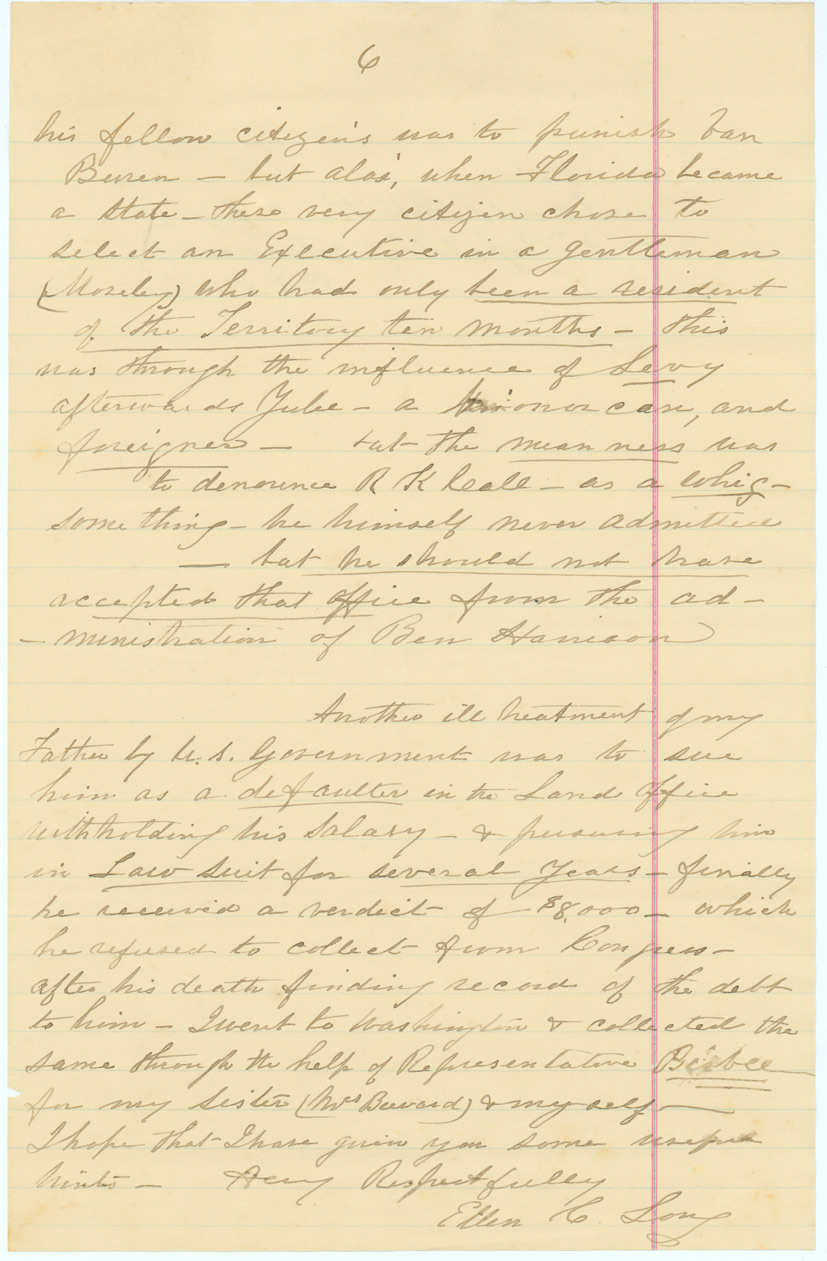 6
his fellow citizen's was to punish Van
Buren – but alas', when Florida became
a State – these very citizen chose to
select an Executive in a gentleman
(Moseley) who had only been a resident
of the Territory ten months – this
was through the influence of Levy
afterwards Yulee – a can, and
foreigner – but the meanness was
to denounce R K Call – as a Whig –
something – he himself never admitted
– but he should not have
accepted that office from the ad-
-ministration of Ben Harrison
Another ill treatment of my
Father by U.S. Government was to sue
him as a defaulter in the Land Office
withholding his Salary – & pursuing him
in Law Suit for several Years – finally
he received a verdict of $8,000 – which
he refused to collect from Congress –
after his death finding record of the debt
to him – I went to Washington & collected the
same through the help of Representative Bisbee
for my sister (Mrs Brevard) & myself –
I hope that I have given you some useful
hints – Very Respectfully
Ellen C. Long